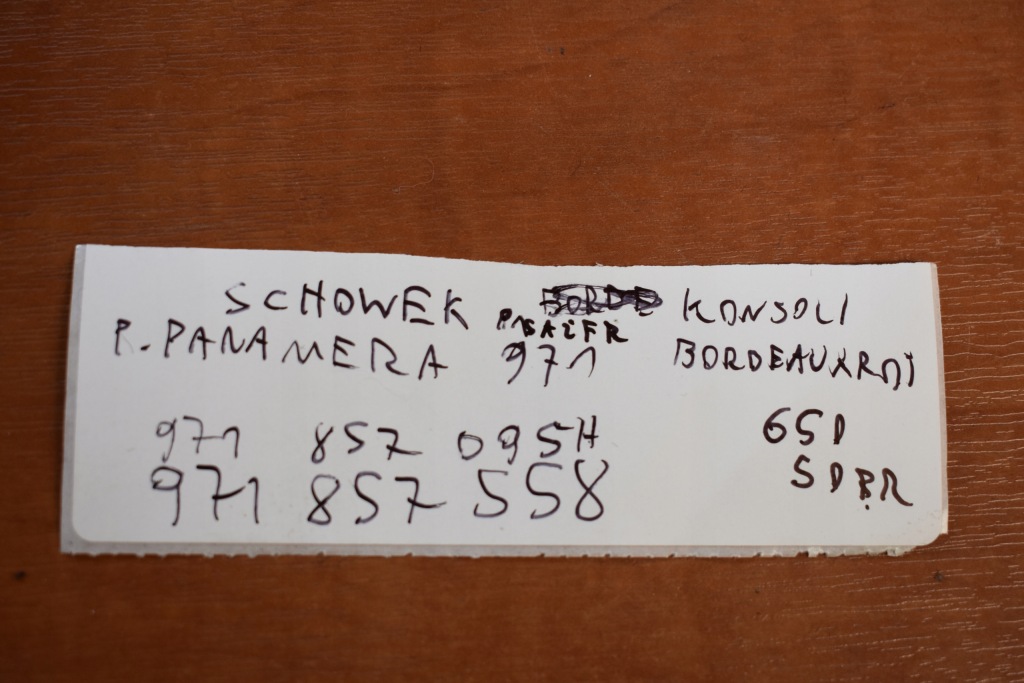 SCHOWEK KONSOLI
P. PANAMERA 971 BORDEAUXROT
971 857 095H 6SD
971 857 558 SDBR